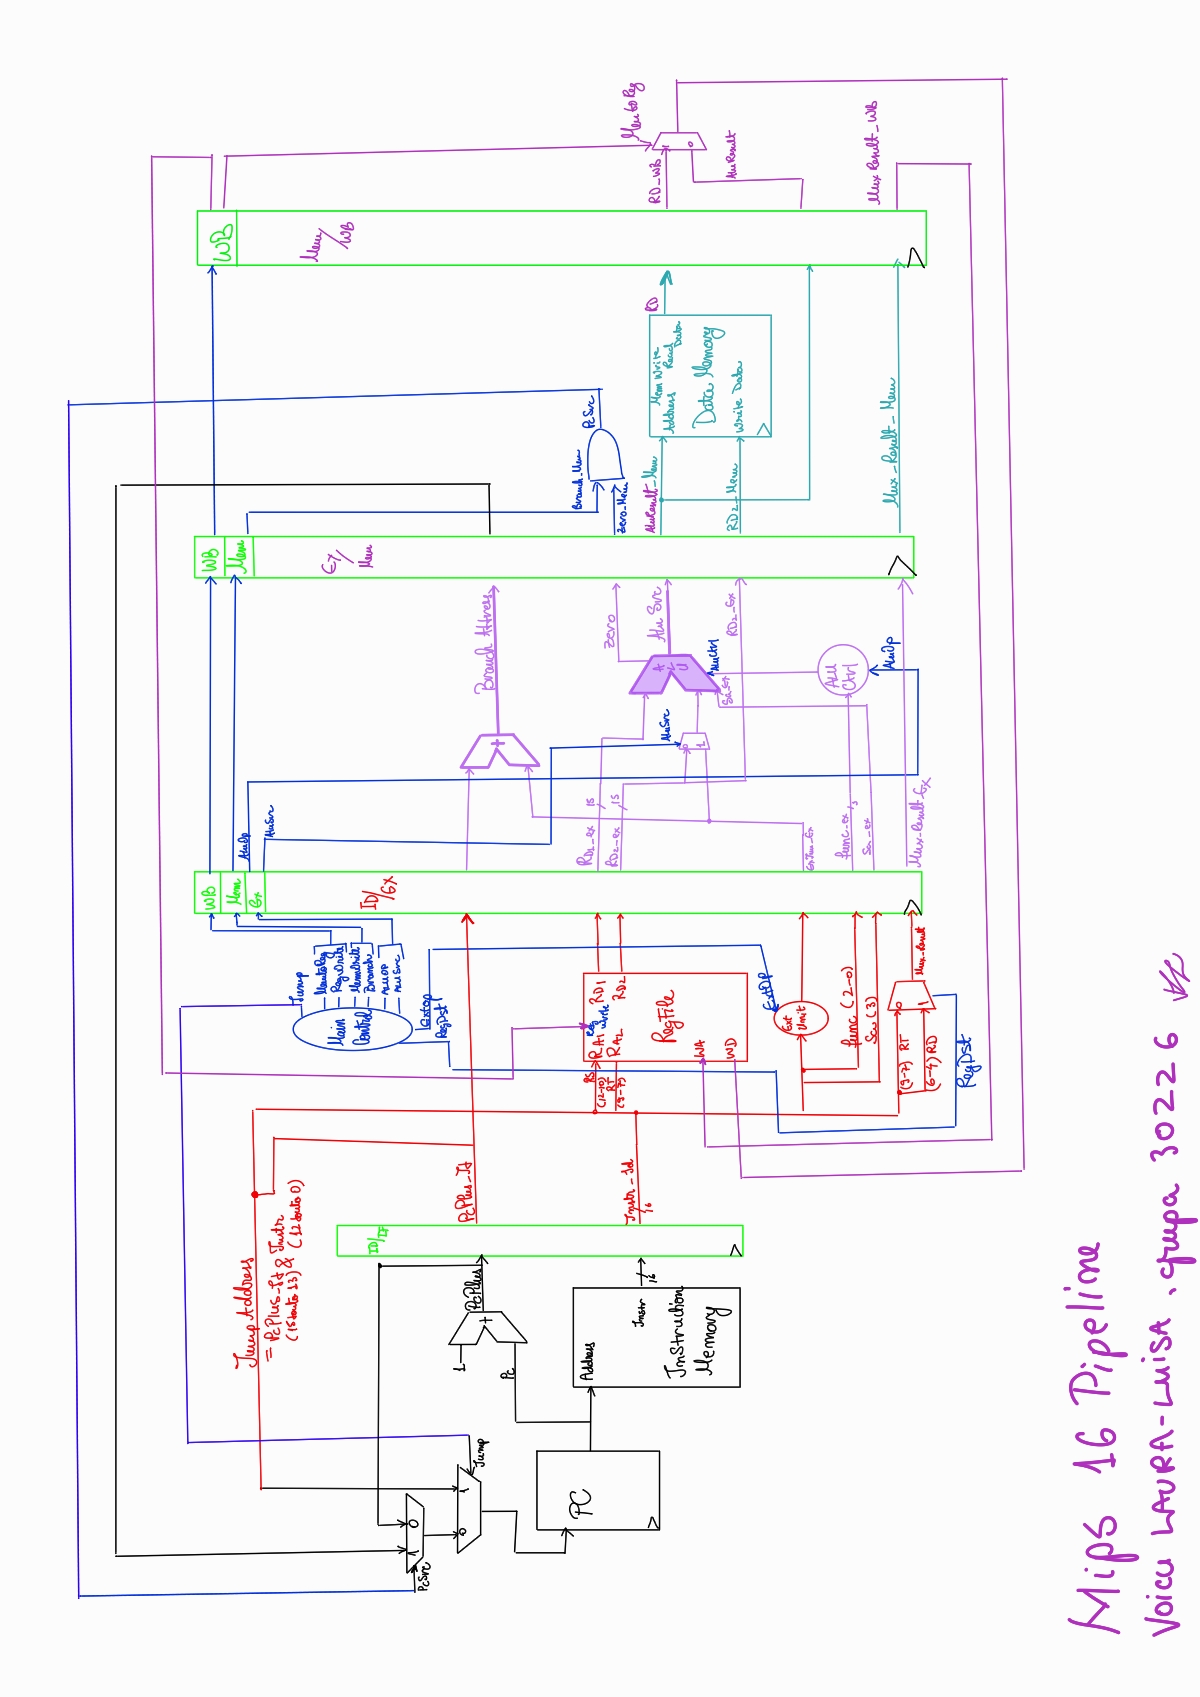 Jump Address
= PcPlus_Id & Instr
(15 downto 13) (12 downto 0)
PcSrc
1 0
0 1
Jump
1
+
PcPlus
Pc
PC
Address
Instr
16
Instruction
Memory
ID/
IF
PcPlus_Id
Instr_Id
16
Main
Control
Jump
MemtoReg
RegWrite
MemWrite
Branch
ALUOP
ALUSrc
ExtOp
RegDst
RS
(12-10)
RT
(9-7)
RA1
Reg
Write
RD1
RA2
RD2
RegFile
WA
WD
ExtOP
Ext
Unit
func (2-0)
Sa (3)
(9-7) RT
(6-4) RD
0
1
Mux_Result
RegDst
WB
Mem
Ex
ID/
Ex
AluOp
AluSrc
+
Branch Address
RD1_ex
15
RD2_ex
15
AluSrc
0
1
ALU
Zero
Alu Src
AluCtrl
Sa_Ex
RD2_Ex
func_ex
3
Sa_ex
ALU
Ctrl
AluOp
Mux_Result_Ex
WB
Mem
Ex
/
Mem
Branch_Mem
PcSrc
Zero_Mem
AluResult_Mem
Mem Write
Address
Read
Data
RD
Data Memory
RD2_Mem
Write Data
Mux_Result_Mem
WB
Mem
/
WB
MemtoReg
RD_WB
1
0
AluResult
Mux Result_WB
Mips 16 Pipeline
Voicu LAURA-LUISA, grupa 30226